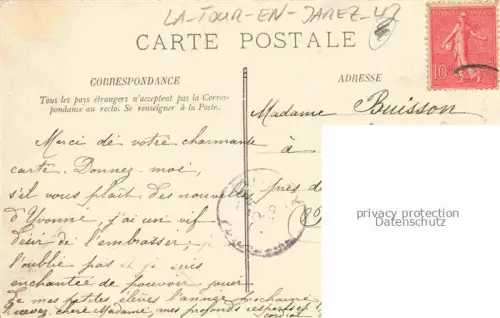 LA-TOUR-EN-JAREZ-42
CARTE POSTALE
CORRESPONDANCE
Tous les pays étrangers n'acceptent pas la Corres-
pondance au recto. Se renseigner à la Poste.
Merci de votre charmante
carte. Donnez-moi,
s'il vous plaît des nouvelles
d'Yvonne, j'ai un vif
désir de l'embrasser; je
l'oublie pas et je suis
enchantée de pouvoir jouir
de mes petites élèves l'année prochaine
Recevez, chère Madame, mes profonds respects et
ADRESSE
Madame Buisson
à
près de
10
privacy protection
Datenschutz